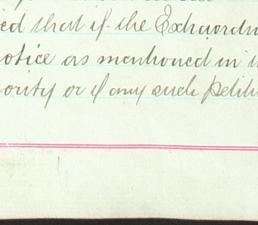 ed that if the Extraordin
notice as mentioned in th
ority or if any such petiti